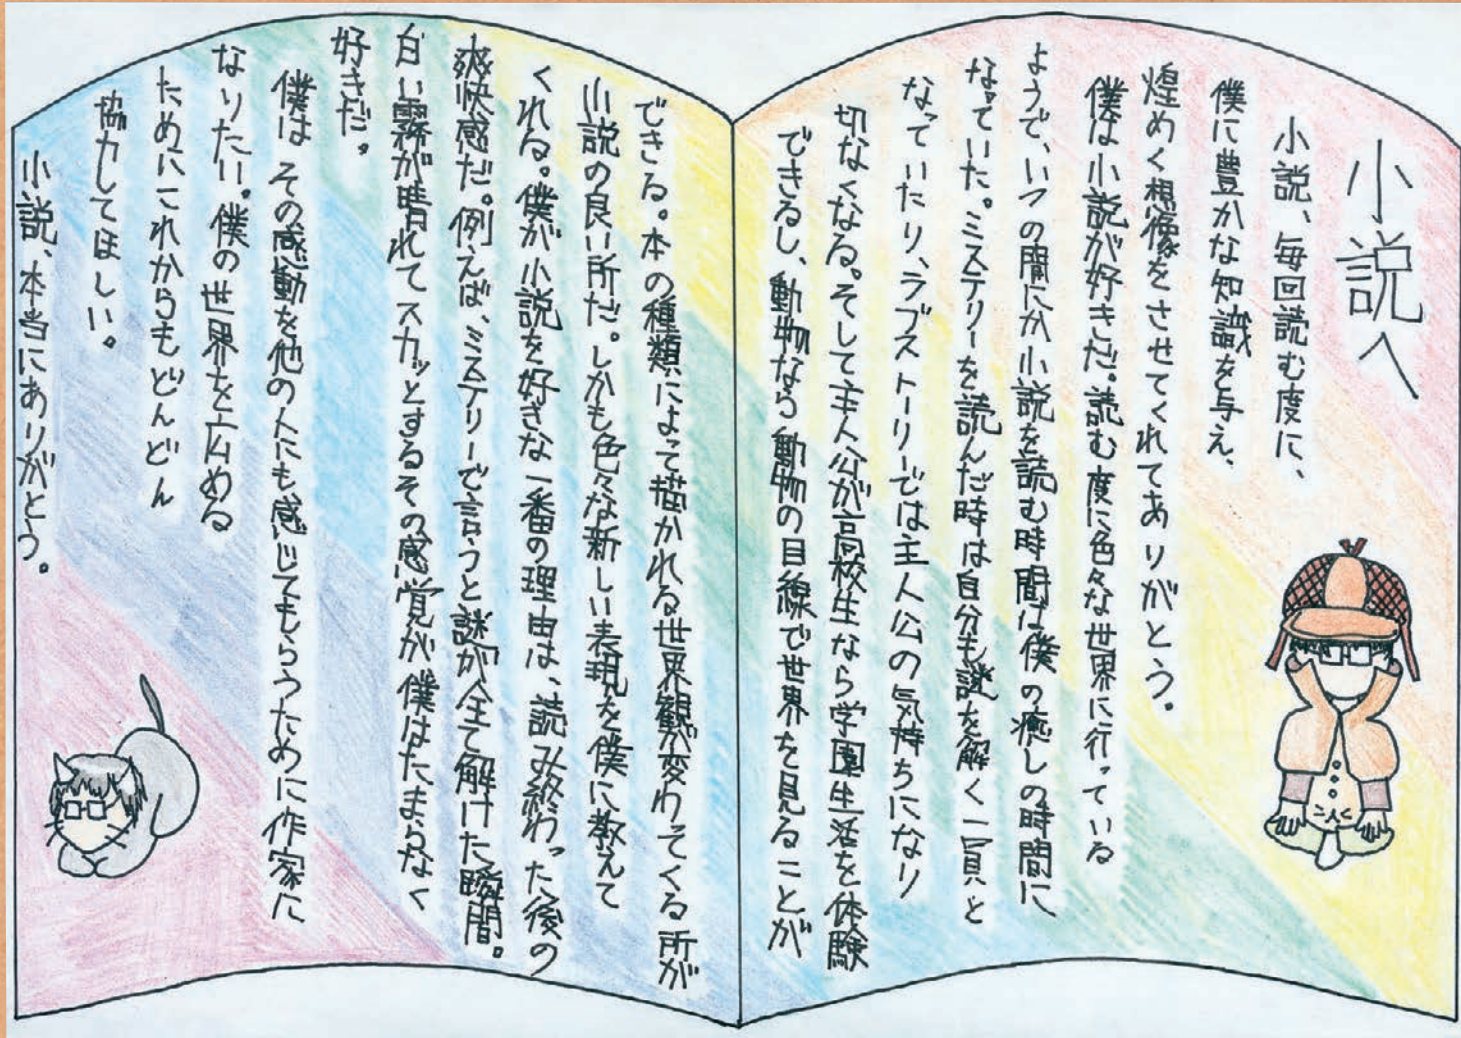 小説へ
小説、毎回読む度に、
僕に豊かな知識を与え、
煌めく想像をさせてくれてありがとう。
僕は小説が好きだ。読む度に色々な世界に行っている
ようで、いつの間にか小説を読む時間は僕の癒しの時間に
なっていた。ミステリーを読んだ時は自分も謎を解く一員と
なっていたり、ラブストーリーでは主人公の気持ちになり
切なくなる。そして主人公が高校生なら学園生活を体験
できるし、動物なら動物の目線で世界を見ることが
できる。本の種類によって描かれる世界観が変わってくる所が
小説の良い所だ。しかも色々な新しい表現を僕に教えて
くれる。僕が小説を好きな一番の理由は、読み終わった後の
爽快感だ。例えば、ミステリーで言うと謎が全て解けた瞬間。
白い霧が晴れてスカッとするその感覚が僕はたまらなく
好きだ。
僕はその感動を他の人にも感じてもらうために作家に
なりたい。僕の世界を広める
ためにこれからもどんどん
協力してほしい。
小説、本当にありがとう。